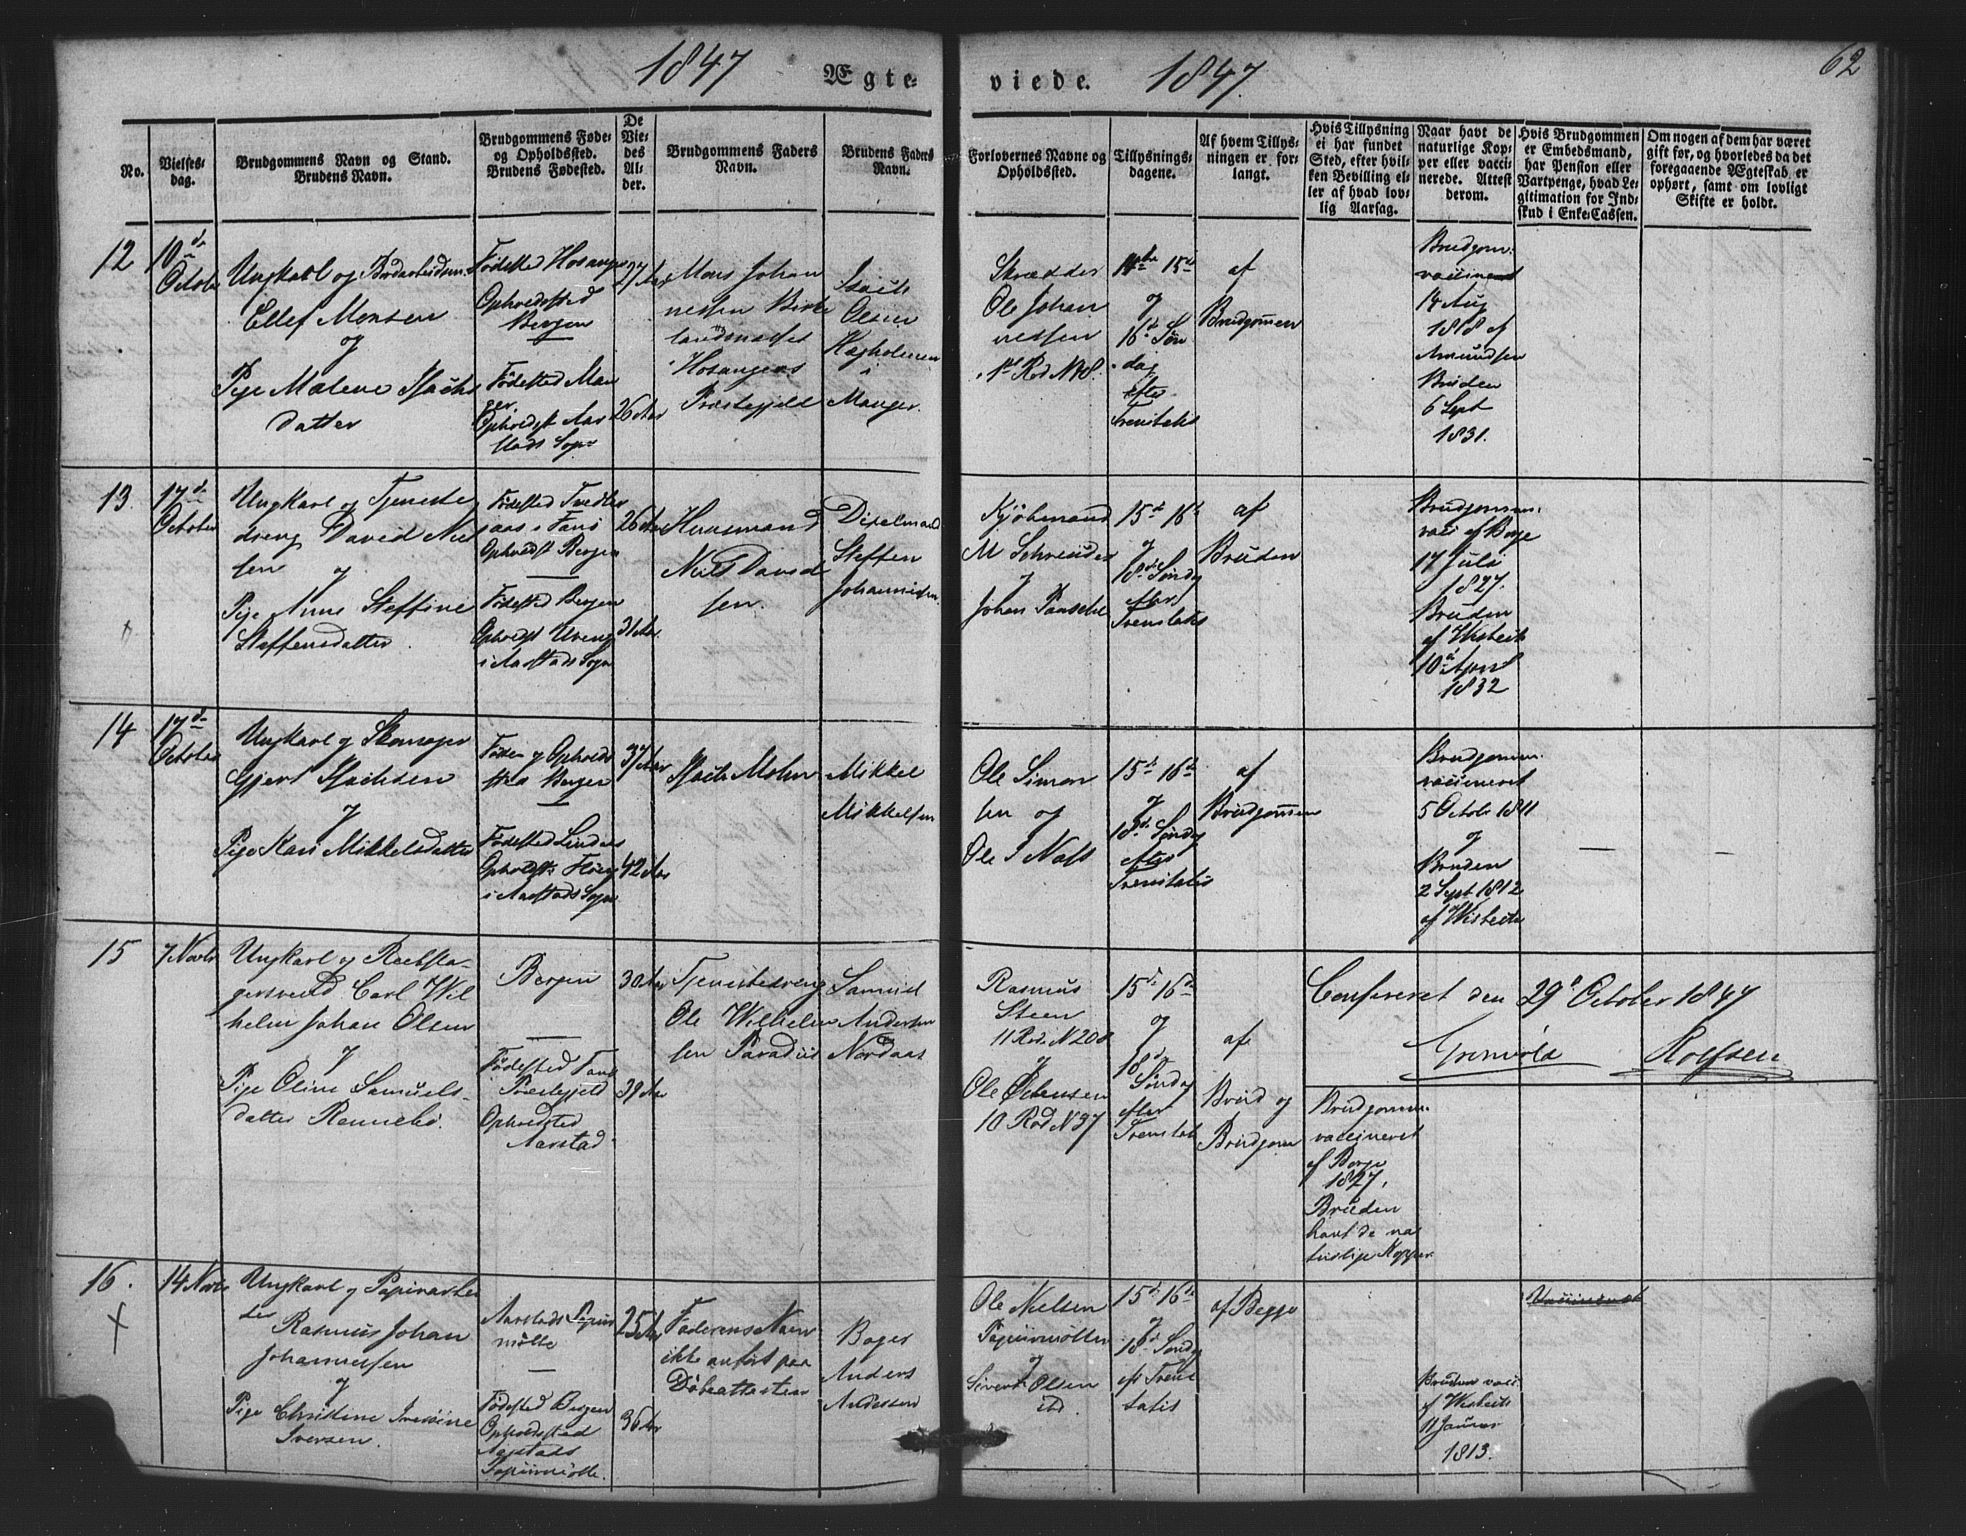 1847 Ægte-
viede. 1847.
62
No.
Vielses-
dag.
Brudgommens Navn og Stand.
Brudens Navn.
Brudgommens Føde-
og Opholdssted.
Brudens Fødested.
De
Vie-
des
Al-
der.
Brudgommens Faders
Navn.
Brudens Faders
Navn.
Forlovernes Navne og
Opholdssted.
Tillysnings-
dagene.
Af hvem Tillys-
ningen er for-
langt.
Hvis Tillysning
ei har fundet
Sted, efter hvil-
ken Bevilling el-
ler af hvad lov-
lig Aarsag.
Naar havt de
naturlige Kop-
per eller vacci-
nerede. Attest
derom.
Hvis Brudgommen
er Embedsmand,
har Pension eller
Vartpenge, hvad Le-
gitimation for Ind-
skud i Enke-Cassen.
Om nogen af dem har været
gift før, og hvorledes da det
foregaaende Ægteskab er
ophørt, samt om lovligt
Skifte er holdt.
12
10de
October
Ungkarl og
Ellef Monsen
og
Pige Malene Isachs
datter
Fødested Hosanger
Opholdssted
Bergen
Fødested Man
ger.
Opholdst Aar
stads Sogn
27 Aar
26 Aar
Mons Johan
nessen Birke
landsnæsset
Hosangers
Præstegjeld
Isach
Olsen
Hagholmen
i
Manger.
Skrædder
Ole Johan
nessen
15de
og
16de Søn
dag
efter
Trenitatis
af
Brudgomen
Brudgom.
vaccineret
14 Aug
1818 af
Amundsen
Bruden
6 Sept
1831.
13.
17de
October
Ungkarl og Tjeneste
dreng David Niel
sen og
Pige Anne Steffine
Steffensdatter.
Fødested
i Fane
Opholdst Bergen
Fødested Bergen
Opholdst
i Aarstads Sogn
26 Aar
31 Aar
Huusmand
Niels David
sen.
Steffen
Johannessen.
Kjøbmand
M Schreuder
og
Johan
15de 16de
og
18de Søndag
efter
Trenitatis
af
Bruden
Brudgommen
vacc af Borge
17 Juli
1827.
Bruden
af Wisbech
10de April
1832
14
17de
October
Ungkarl og Skomager
Gjert Isachsen
og
Pige Kari Mikkelsdatter
Føde- og Opholds
sted Bergen
Fødested Lindaas
Opholdst
i Aarstads Sogn
37 Aar
42 Aar
Isach Mohn
Mikkel
Mikkelsen
Ole Simon
sen og
Ole
15de 16de
og
18de Søndag
efter
Trenitatis
af
Brudgommen
Brudgommen
vaccineret
5 October 1811
og
Bruden
2 Sept 1812
af Wisbech
15
7 Novbr
Ungkarl og Reebsla-
gersvend Carl Wil
helm Johan Olsen
og
Pige Oline Samuels-
datter
Bergen
Fødested Fane
Præstegjeld
Opholdsted
Aarstad
30 Aar
39 Aar
Tjenestedreng
Ole Wilhelm
sen Paradiis
Samuel
Andersen
Nordaas
Rasmus
Steen
11 Rod. N 208
og
Ole
10 Rod N 37
15de 16de
og
18de
Søndag
efter
Trenitat
af
Brud og
Brudgom
Confereret den 29de October 1847
Rolfsen
Brudgommen
vaccineret
af Borge
1827,
Bruden
havt de na
turlige Kopper
16.
14 Novbr
Ungkarl og Papirarbei
der
Rasmus Johan
Johannessen
og
Pige Christine
Iversen.
Aarstads Papiir
mølle
Fødested Bergen
Opholdssted
Aarstads
Papiirmølle.
25 Aar
36 Aar
Faderens Navn
ikke anført paa
Døbeattesten
Bager
Anders
Andersen
Ole Nielsen
Papiirmøllen
og
Sivert Olsen
ibd.
15de 16de
og
18de Søndag
eft Treni
tatis
af Begge
Vaccineret
Bruden vacc.
af Wisbech
11 Januar
1813.